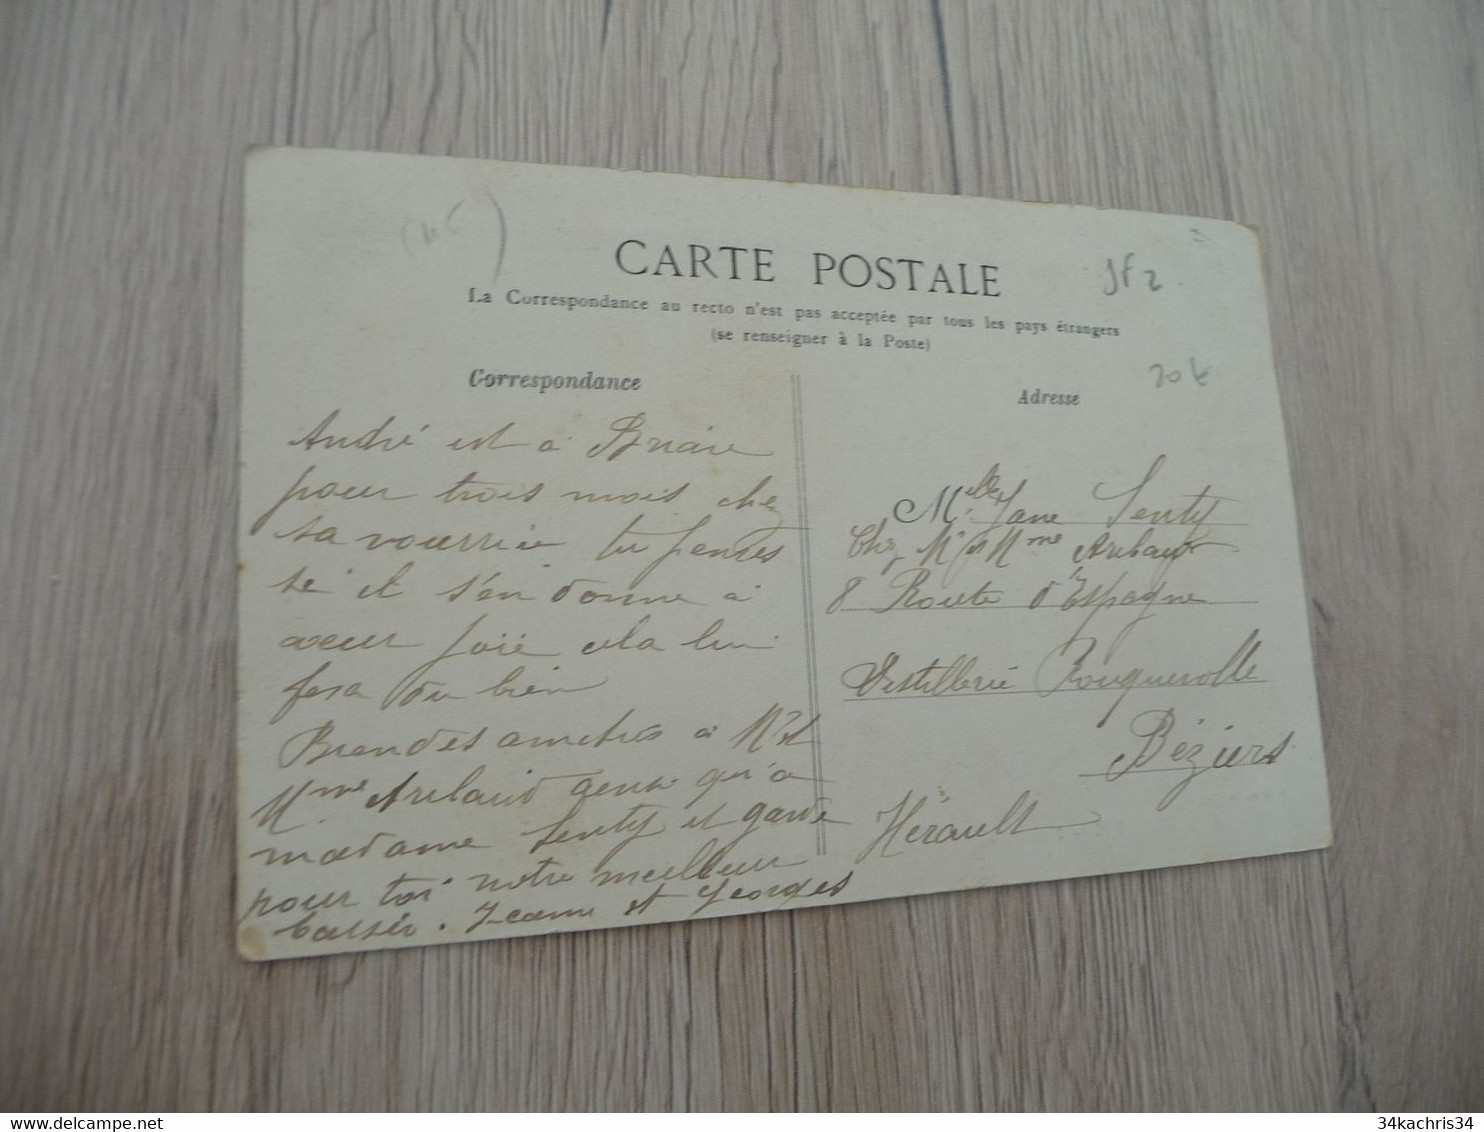 CARTE POSTALE
La Correspondance au recto n'est pas acceptée par tous les pays étrangers
(se renseigner à la Poste)
Correspondance
Adresse
André est à Briare
pour trois mois che
sa nourrice tu penses
si il s'en donne à
coeur joie cela lui
fera du bien
Grandes amitiés à Mr et
Mme Aribaud ainsi qu'à
madame Senty et garde
pour toi notre meilleur
baiser. Jeanne et Georges
Melle Jane Senty
Chez Mr et Mme Aribaud
8 Route d'Espagne
Distillerie Rouquerolle
Béziers
Hérault
34kachris34